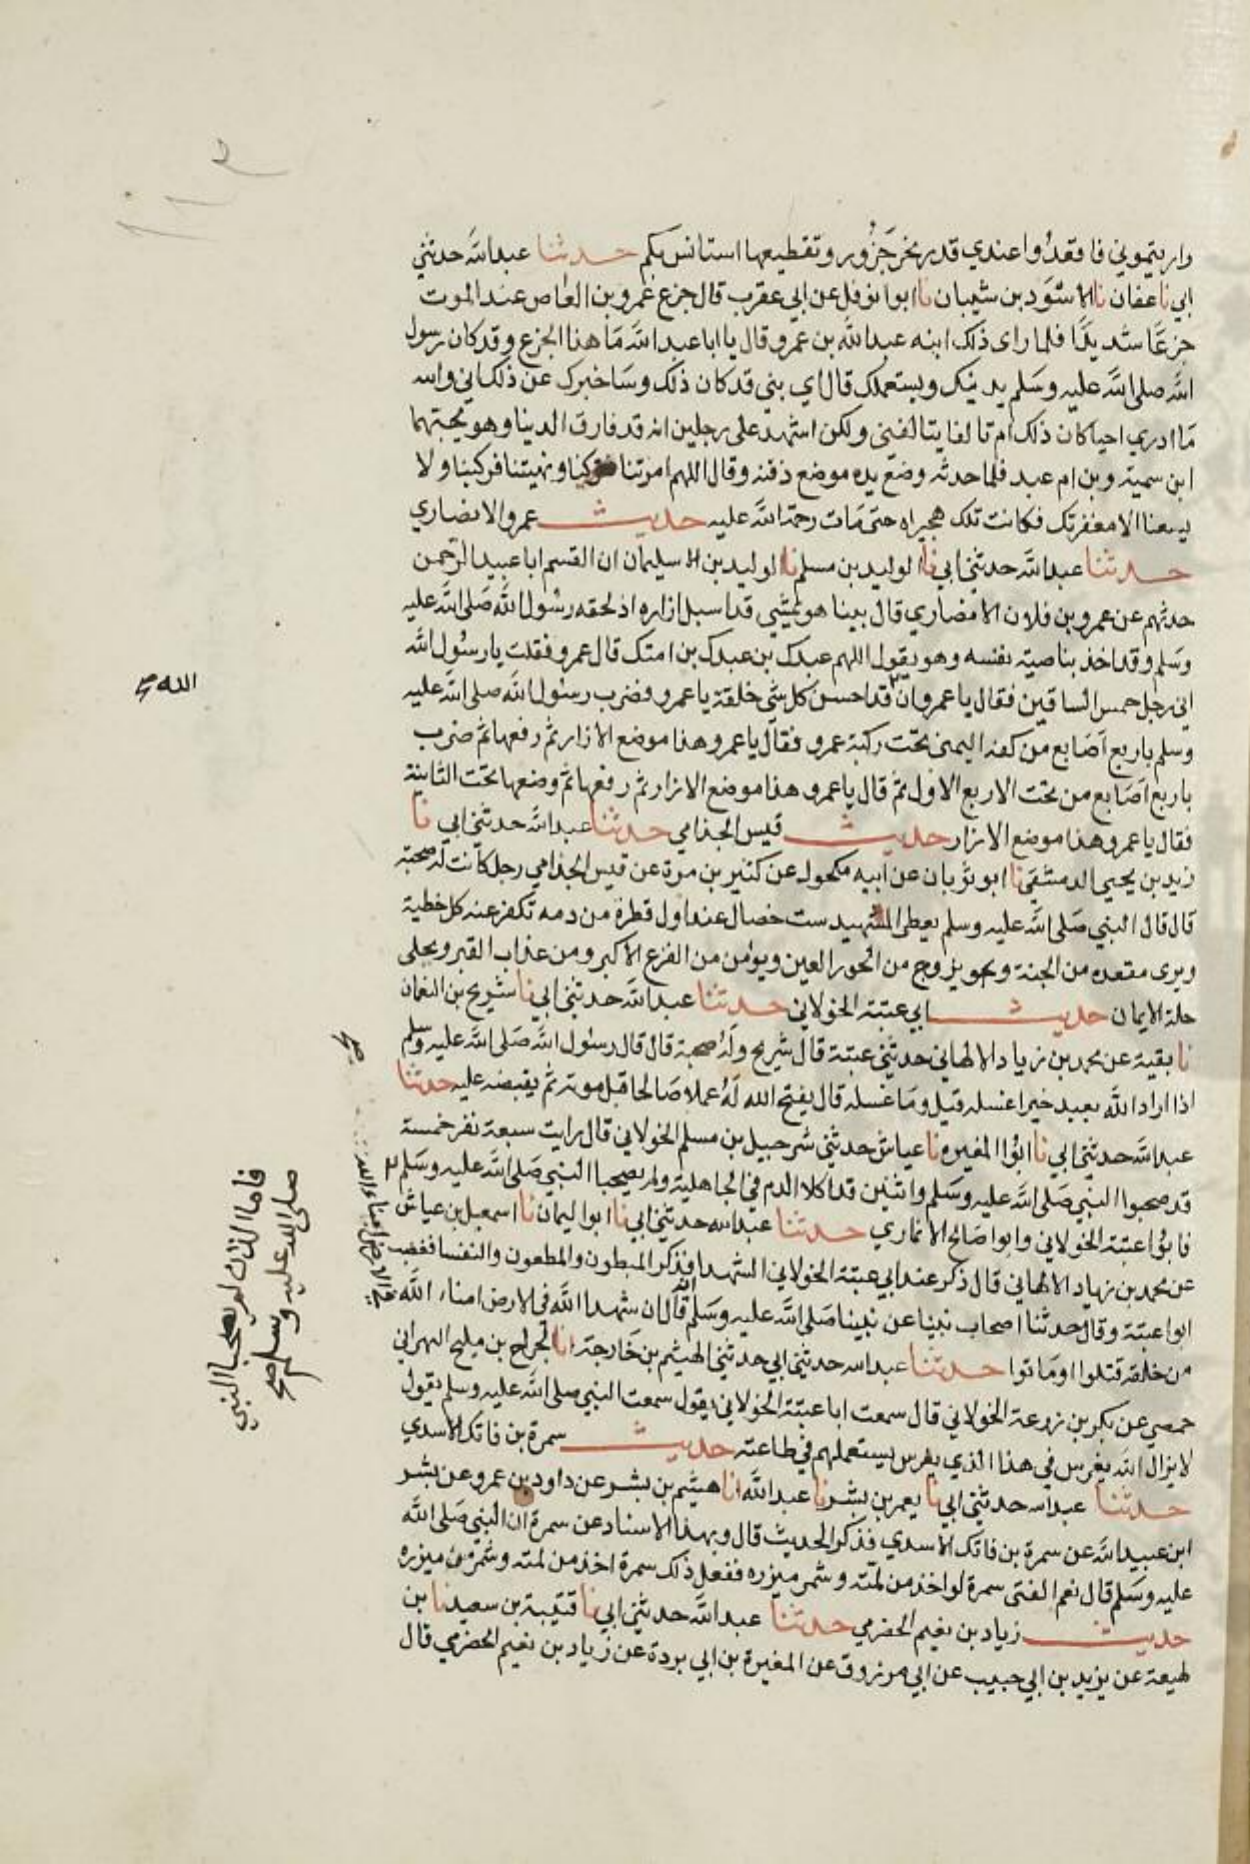 واريتموني فاقعدُوا عندي قدر نحر جَزُور وتقطيعها استانس بكم حدثنا عبد الله حدثني
ابي نا عفان نا الاسْوَد بن شيبان نا ابوا نوفل عن ابي عقرب قال جزع عَمرو بن العاص عند الموت
جزعًا شديدًا فلما راى ذلك ابنه عبد الله بن عمرو قال يا ابا عبد الله مَا هذا الجزع وقد كان رسول
الله صلى الله عليه وسَلم يدنيك ويستعملك قال اي بني قد كان ذلك وسَاخبرك عن ذلك اني والله
مَا ادري احبا كان ذلك ام تالفا يتالفني ولكن اشهد على رجلين انه قد فارق الدينا وهو يحبهما
ابن سمية وبن ام عبد فلما حدثه وضع يده موضع ذقنه وقال اللهم امرتنا فتركنا ونهيتنا فركبنا ولا
يسعنا الا مغفرتك فكانت تلك هجيراه حتى مَات رحمة الله عليه حديث عمرو الانصاري
حدثنا عبد الله حدثني ابي نا الوليد بن مسلم نا الوليد بن الا سليمان ان القسم ابا عبيد الرّحمن
حدثهم عن عمرو بن فلان الانصاري قال بينا هو يمشي قد اسبل ازاره اذ لحقه رسُول الله صَلى الله عليه
وسَلم وقد اخذ بناصية نفسه وهو يقول اللهم عبدك بن عبدك بن امتك قال عمرو فقلت يا رسُول الله
اني رجل حمس الساقين فقال يا عمرو ان قد احسن كل شي خلقة يا عمرو وضرب رسول الله صلى الله عليه
وسلم باربع اَصَابع من كفه اليمنى تحت ركبة عمرو فقال يا عمرو هذا موضع الازار ثم رفعها ثم ضرب
باربع اَصَابع من تحت الاربع الاول ثم قال يا عمرو هذا موضع الازار ثم رفعها ثم وضعها تحت الثانية
فقال يا عمرو هذا موضع الازار حديث قيس الجذامي حدثنا عبد الله حدثني ابي نا
زيد بن يحيى الدمشقي نا ابو ثوبان عن ابيه مكحول عن كثير بن مرة عن قيس الجذامي رجل كانت له صحبة
قال قال النبي صَلى الله عليه وسلم يعطى الشهيد ست خصال عند اول قطرة من دمه تكفر عنه كل خطية
ويرى مقعده من الجنة ويزوج من الحور العين ويومن من الفزع الاكبر ومن عذاب القبر ويحلى
حلة الايمان حديث ابي عتبة الخولاني حدثنا عبد الله حدثني ابي نا شريح بن النعمان
نا بقية عن محمد بن زياد الالهاني حدثني عتبة قال شريح ولَهُ صحبة قال قال رسُول الله صَلى الله عليه وسلم
اذا اراد الله بعبد خيرا عسله قيل ومَا عسله قال يفتح الله لَهُ عملا صَالحا قبل موته ثم يقبضه عليه حدثنا
عبد الله حدثني ابي نا ابوُا المغيره نا عياش حدثني شرحبيل بن مسلم الخولاني قال رايت سبعة نفر خمسة
قد صحبوا النبي صَلى الله عليه وسَلم واثنين قد اكلا الدم في الجاهلية ولم يصحبا النبي صَلى الله عليه وسَلم
فابوُا عتبة الخولاني وابوا صَالح الانماري حدثنا عبد الله حدثني ابي نا ابوا اليمان نا اسمعيل بن عياش
عن محمد بن زياد الالهاني قال ذكر عند ابي عتبة الخولاني الشهدا فذكر المبطون والمطعون والنفسا فغضب
ابوا عتبة وقال حدثنا اصحاب نبينا عن نبينا صَلى الله عليه وسَلم قال ان شهدا الله في الارض امناء الله
من خلقه قتلوا او مَاتوا حدثنا عبد الله حدثني ابي حدثني الهيثم بن خَارجة انا الجراح بن مليح البهراني
حمصي عن بكر بن زرعة الخولاني قال سمعت ابا عتبة الخولاني يقول سمعت النبي صلى الله عليه وسلم يقول
لا يزال الله يغرس في هذا الذي بغرس يستعملهم في طاعته حديث سمرة بن فاتك الاسدي
حدثنا عبد الله حدثني ابي نا يعمر بن بشر نا عبد الله انا هشيم بن بشر عن داود بن عمرو عن بشر
ابن عبيد الله عن سمرة بن فاتك الاسدي فذكر الحديث قال وبهذا الاسناد عن سمرة ان النبي صَلى الله
عليه وسَلم قال نعم الفتى سمرة لو اخذ من لمته وشمر ميزره ففعل ذلك سمرة اخذ من لمته وشمر من ميزره
حديث زياد بن نعيم الحضرمي حدثنا عبد الله حدثني ابي نا قتيبة بن سعيد نا بن
لهيعة عن يزيد بن ابي حبيب عن ابي مرزوق عن المغيرة بن ابي بردة عن زياد بن نعيم الحضرمي قال
الله صح
فاما اللذان لم يصحبا النبي
صلى الله عليه وسلم صح